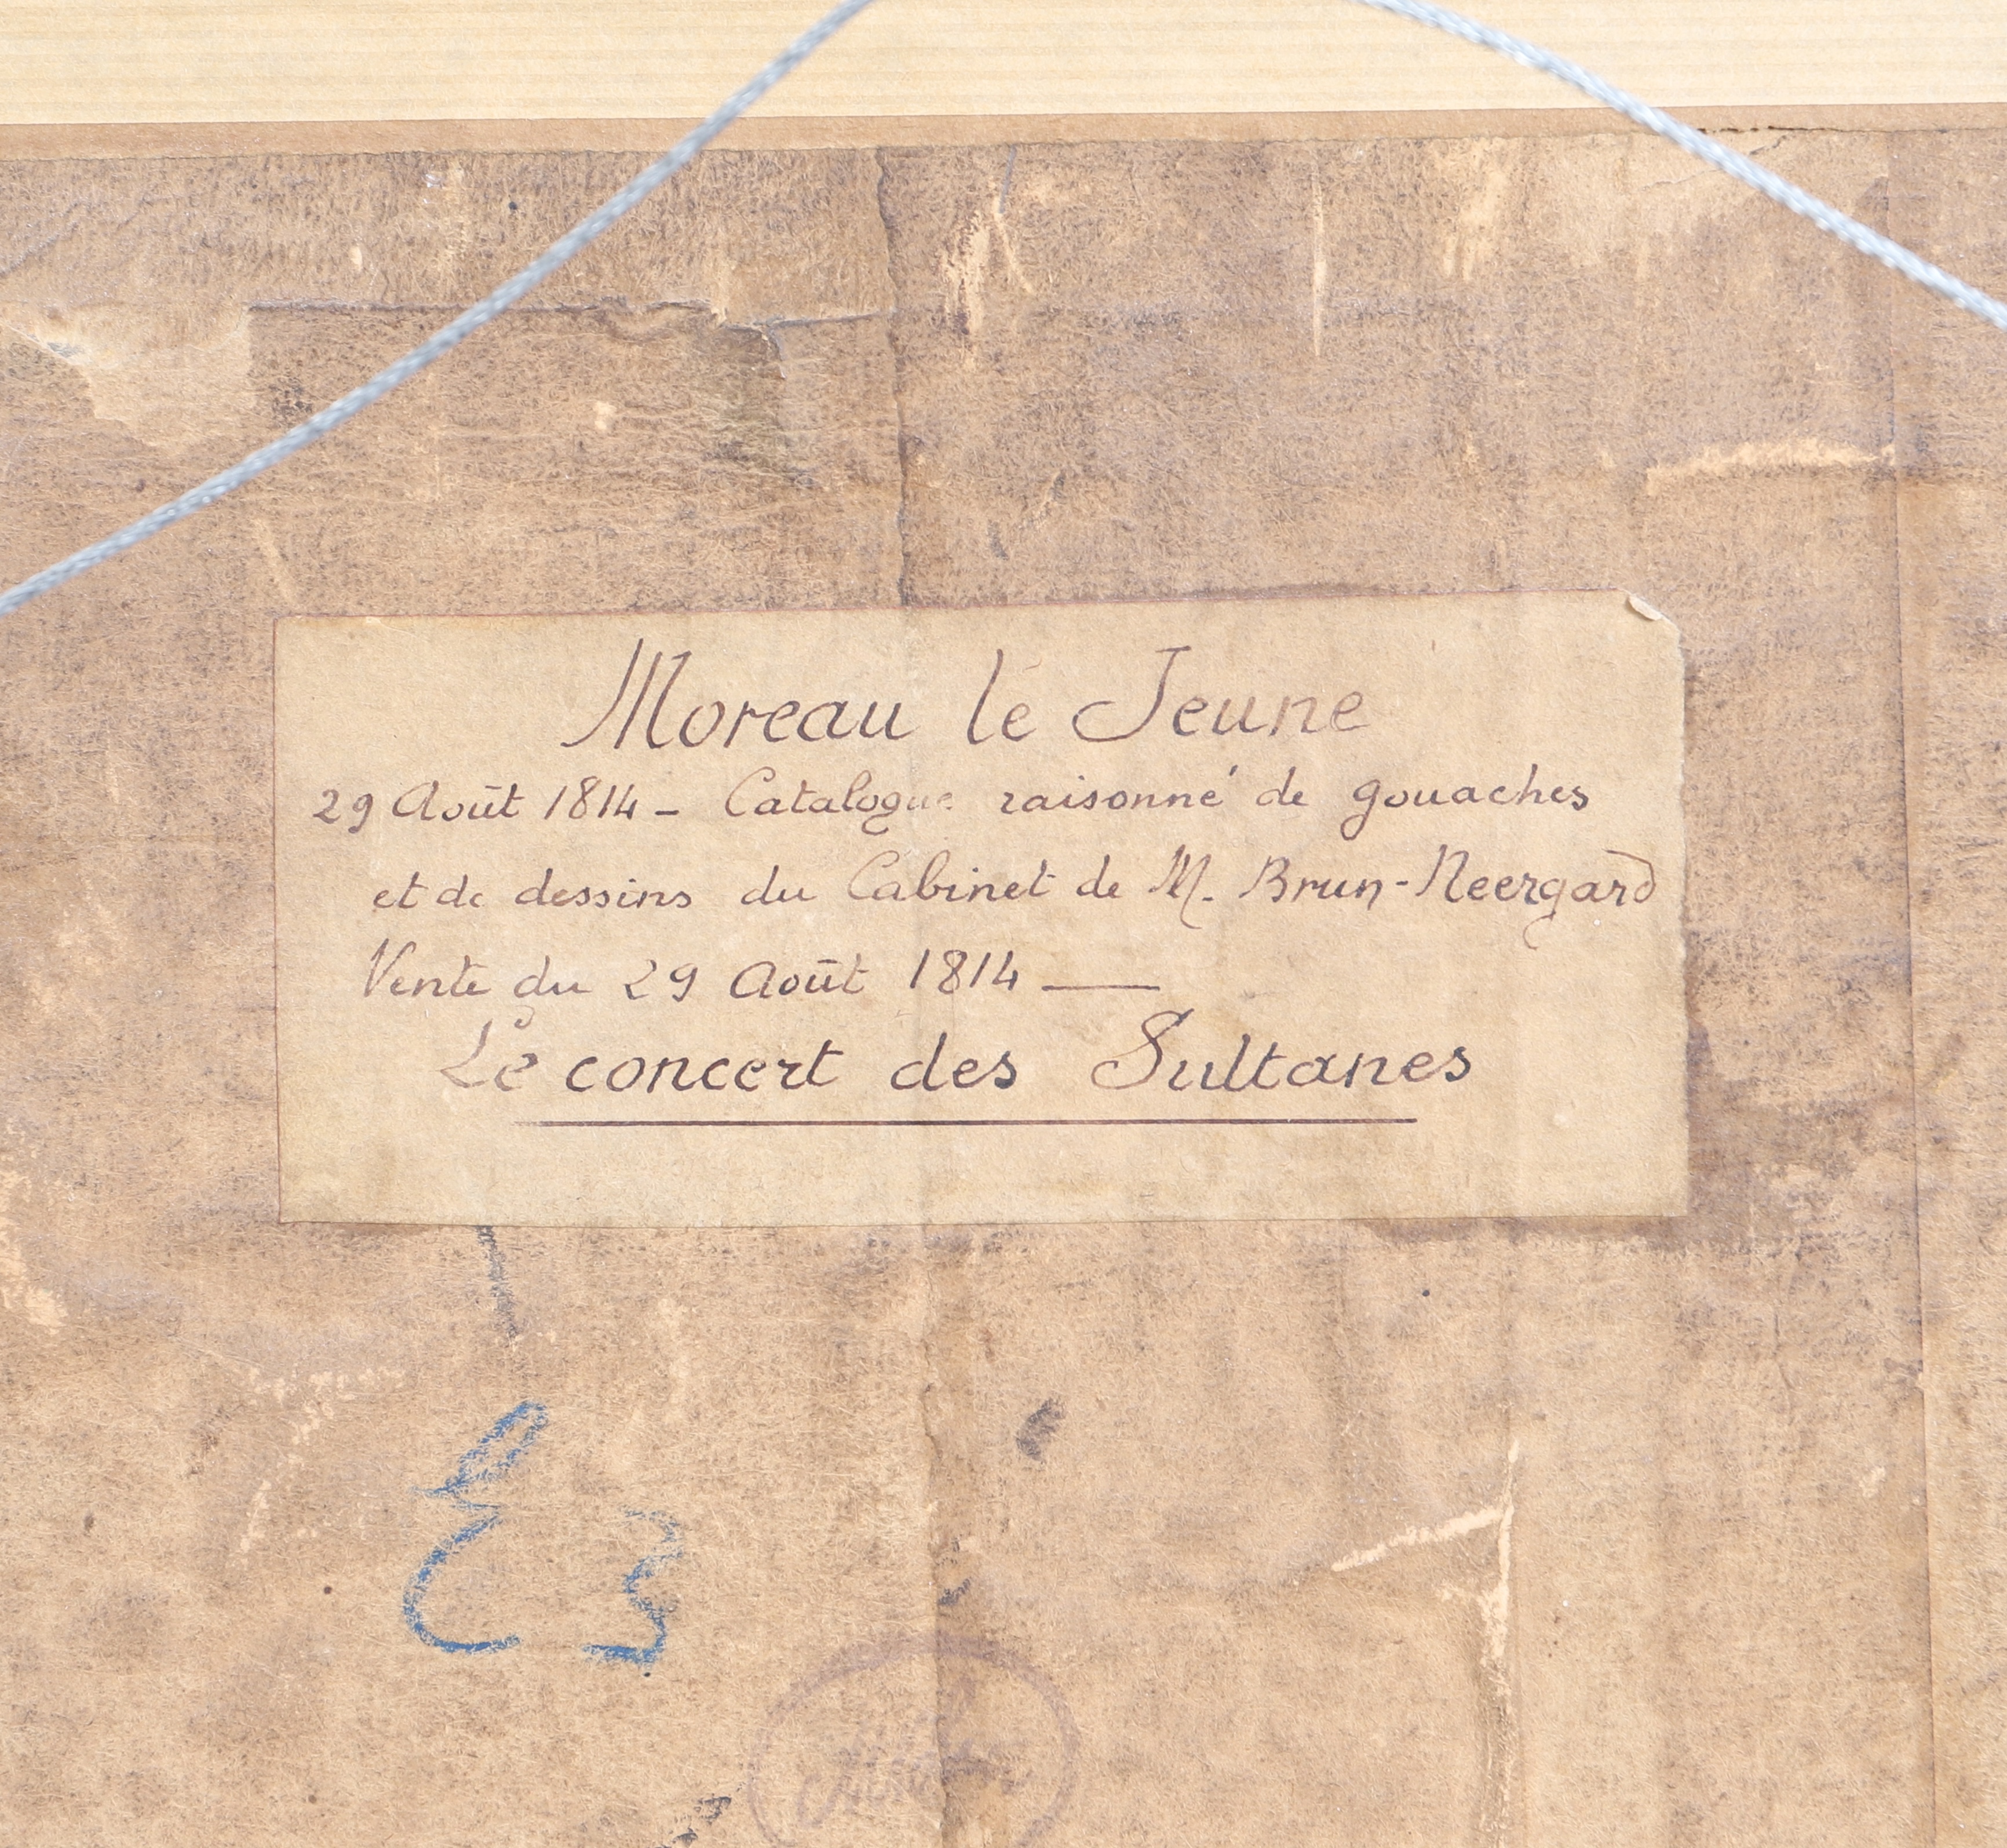 Moreau le Jeune
29 Août 1814 - Catalogue raisonné de gouaches
et de dessins du Cabinet de M. Brun-Neergard
Vente du 29 Août 1814 —
Le concert des Sultanes